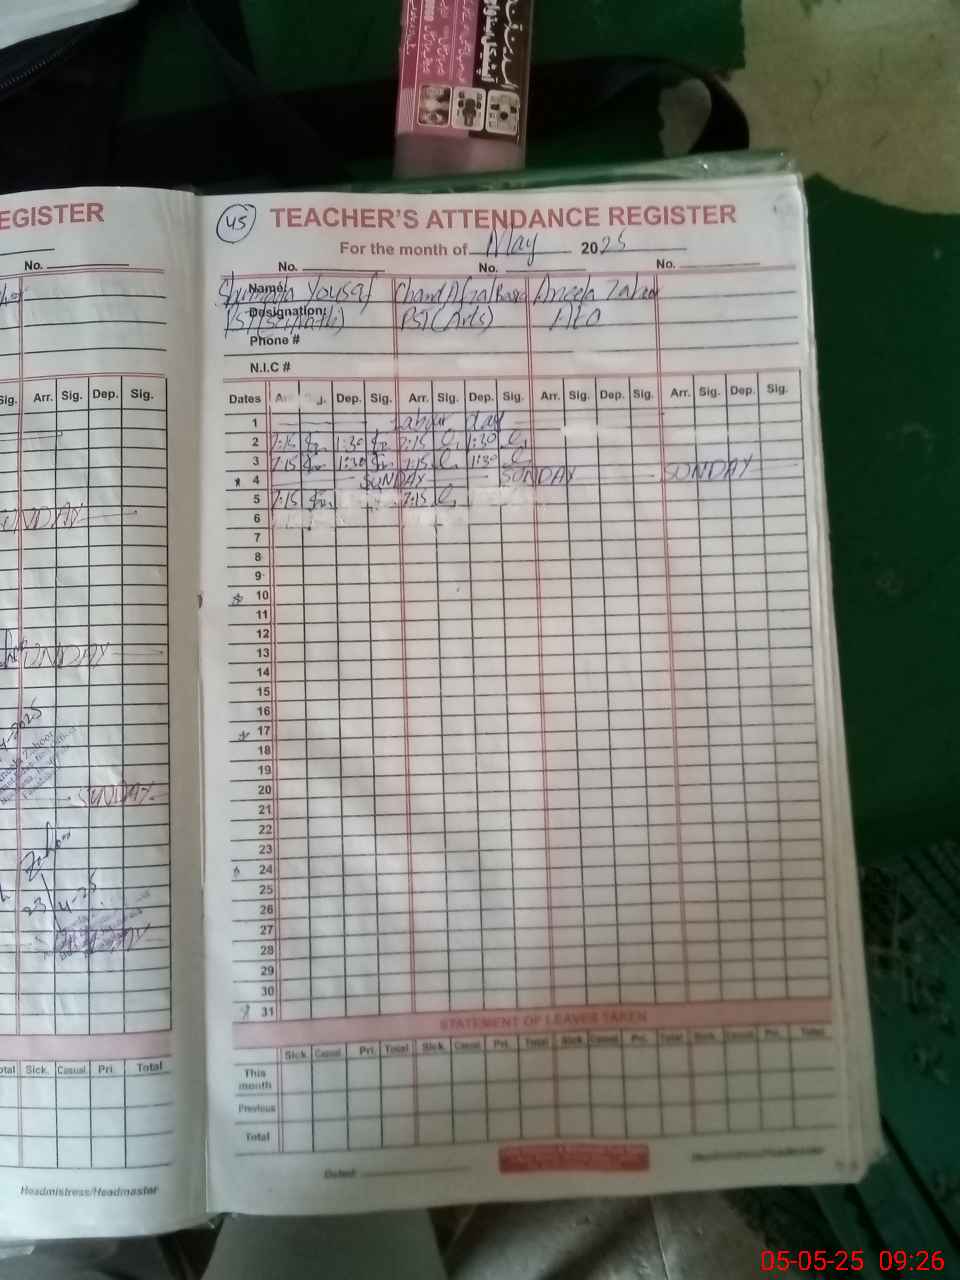 EGISTER
No.
Sig. Arr. Sig. Dep. Sig.
SUNDAY
SUNDAY
4-2025
SUNDAY
23/4-25
Total Sick. Casual. Pri. Total
Headmistress/Headmaster
45 TEACHER'S ATTENDANCE REGISTER
For the month of May 2025
No. No. No.
Name: Yousaf Chand Afzal Aneela
Designation: PST(Sci/Math) PST(Arts) AEO
Phone #
N.I.C #
Dates Arr. Dep. Sig. Arr. Sig. Dep. Sig. Arr. Sig. Dep. Sig. Arr. Sig. Dep. Sig.
1 Labour day
2 7:15 1:30 7:15 1:30
3 7:15 1:30 7:15 1:30
4 SUNDAY SUNDAY SUNDAY
5 7:15 7:15
6
7
8
9
10
11
12
13
14
15
16
17
18
19
20
21
22
23
24
25
26
27
28
29
30
31
STATEMENT OF LEAVES TAKEN
Sick. Casual. Pri. Total Sick. Casual. Pri. Total Sick. Casual. Pri. Total Sick. Casual. Pri. Total
This month
Previous
Total
Dated: Headmistress/Headmaster
05-05-25 09:26